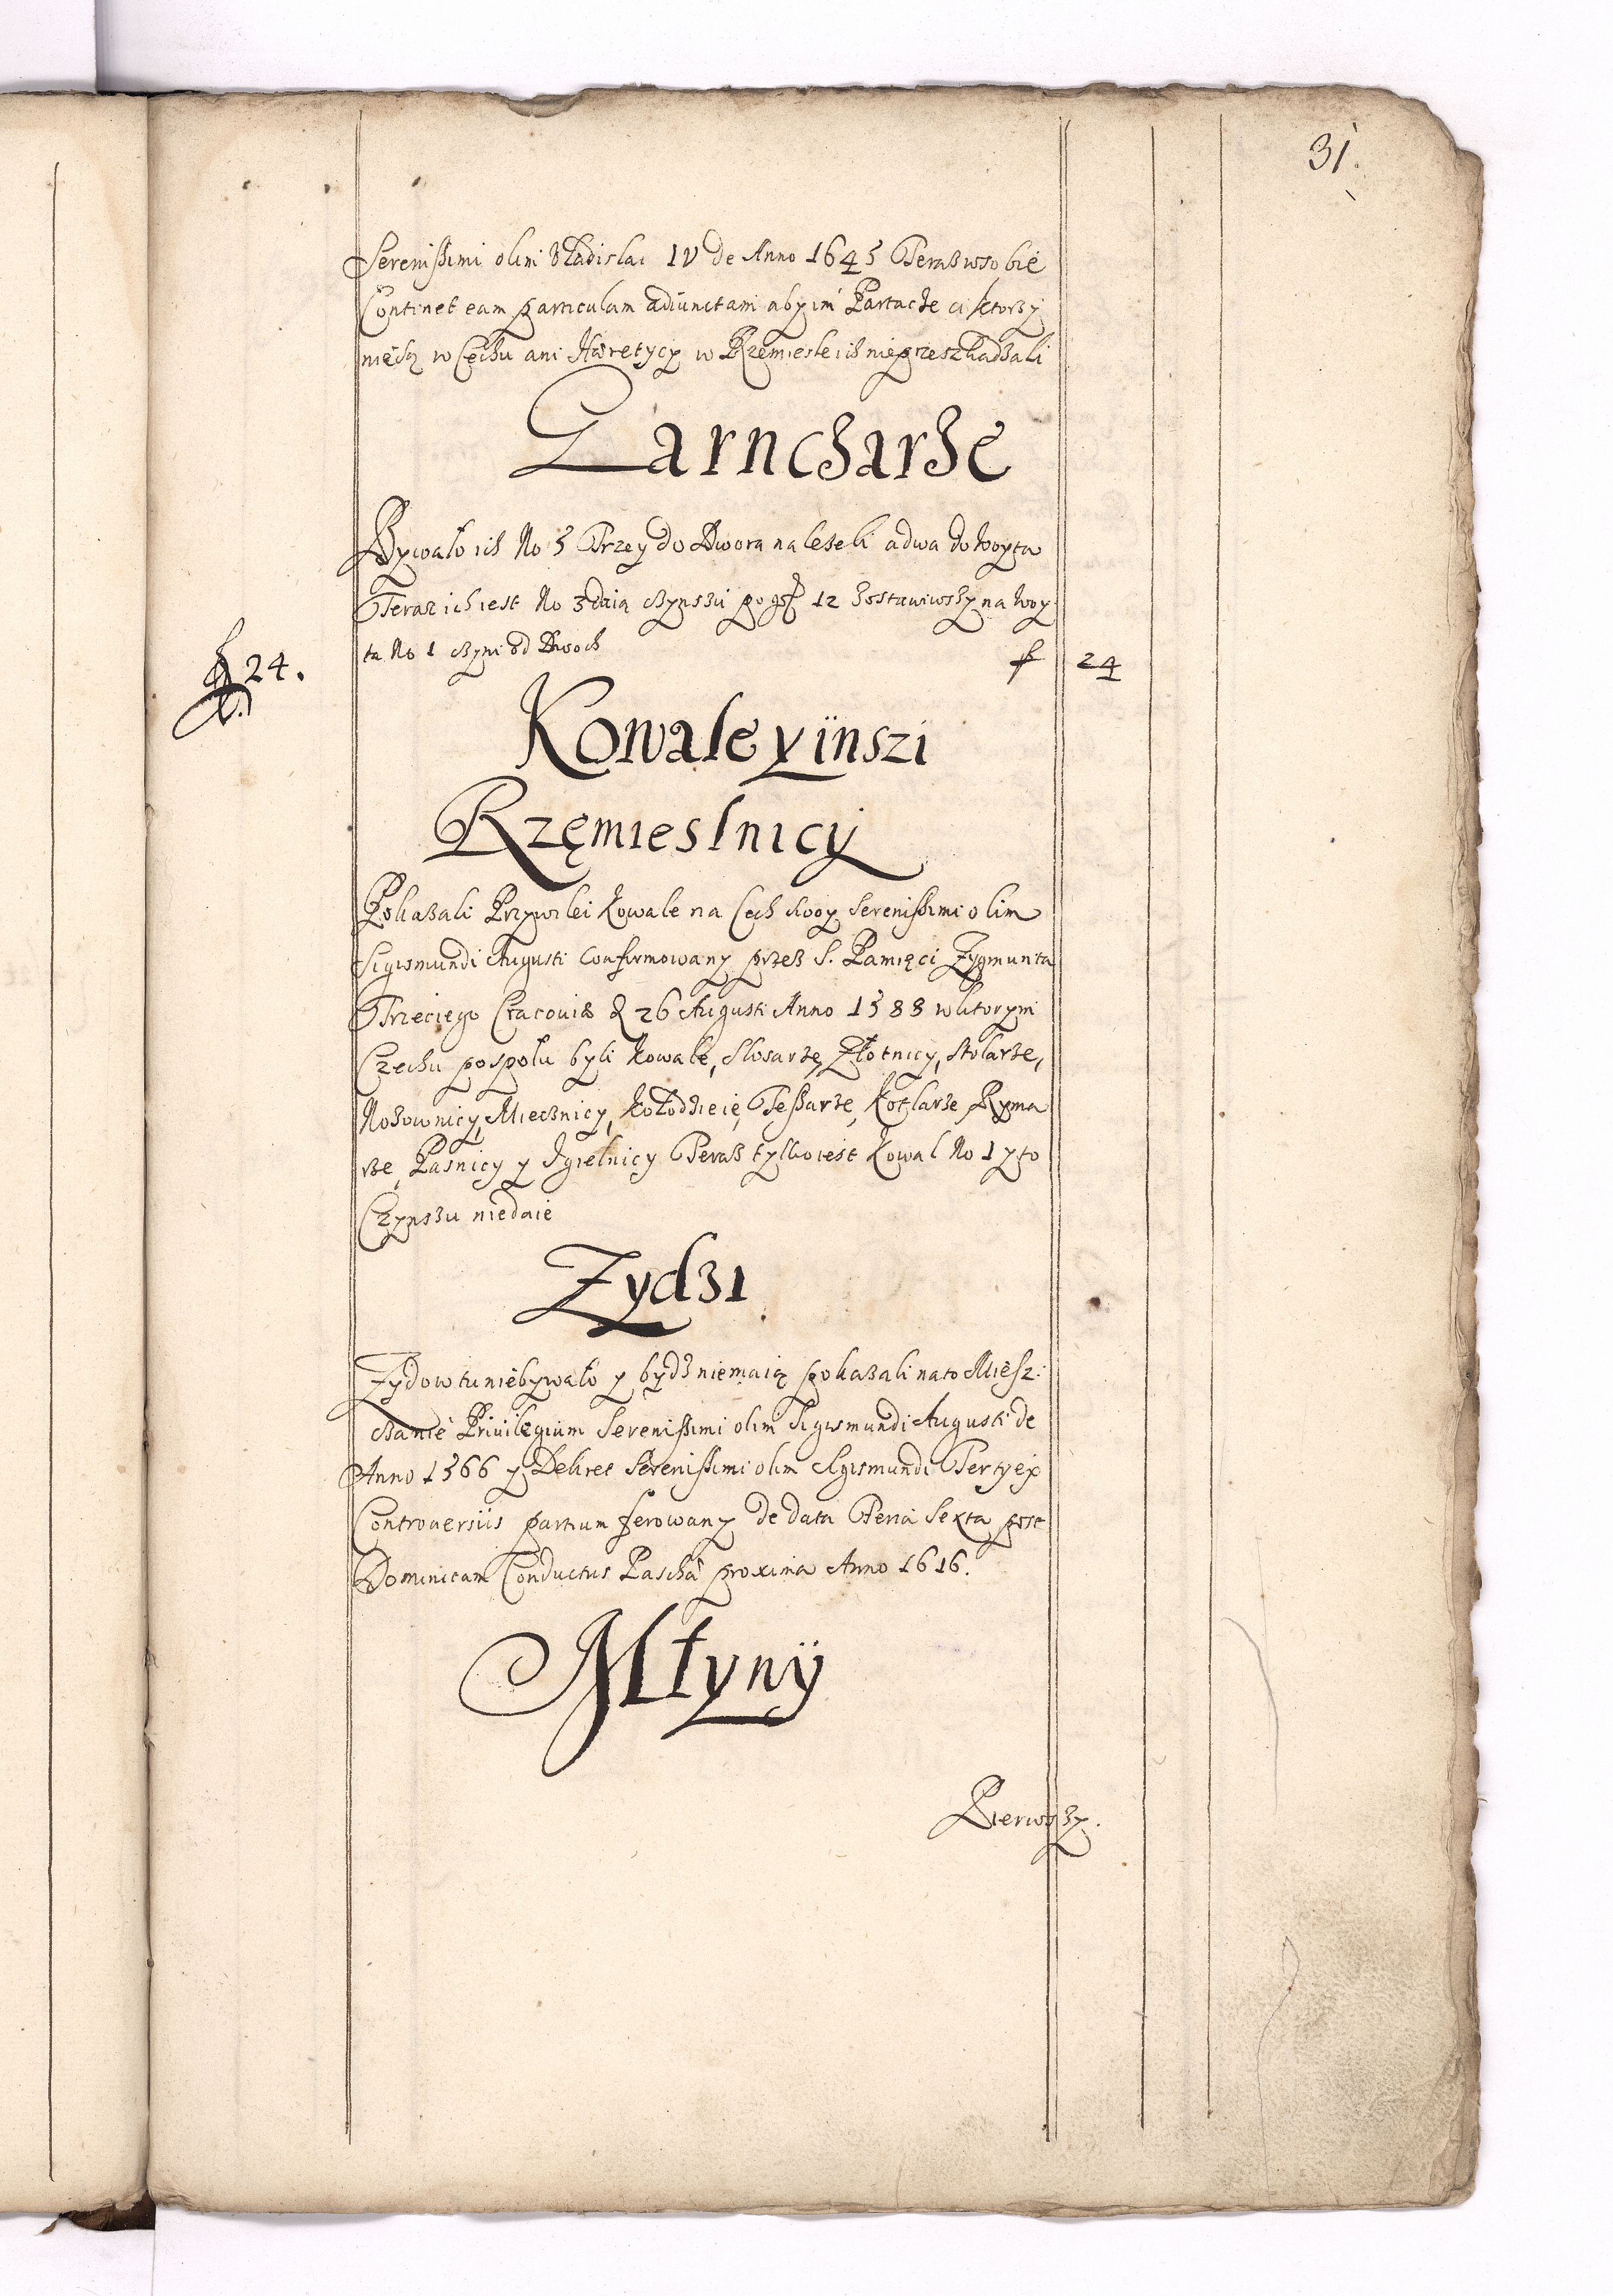 31.
Serenissimi olim Vladislai IV de Anno 1645 Teraz wsobie
Continet eam particulam adiunctam aby im Partacze ci ktorzy
niesą w Cechu ani Hæretycy w Rzemiesle ich nieprzeszkadzali
Garncharze
Bywało ich No 5 Trzey do Dwora nalezeli a dwa do Woyta
Teraz ich iest No 3 daią czynszu po gr 12 Zostawiwszy na Woy
ta No 1 czyni od Dwoch f 24
24.
Kowale y inszi
Rzęmieslnicy
Pokazali Przywilei Kowale na Cech swoy Serenissimi olim
Sigismundi Augusti Confirmowany przez S. Pamięci Zygmunta
Trzeciego Cracoviæ d 26 Augusti Anno 1588 w ktorym
Czechu pospołu byli Kowale, Slosarze, Złotnicy, Stolarze,
Nozownicy, Miecznicy, Kołodzieie, Tessarze, Kotlarze Ryma
rze, Pasnicy y Igielnicy Teraz tylko iest Kowal No 1 y to
Czynszu niedaie
Zydzi
Zydow tu niebywało y bydz niemaią pokazali na to Miesz:
czanie Privilegium Serenissimi olim Sigismundi Augusti de
Anno 1566 y Dekret Serenissimi olim Sigismundi Tertij ex
Controversiis partium ferowany de data Feria Sexta post
Dominicam Conductus Paschæ proxima Anno 1616.
Młyny
Pierwszy.